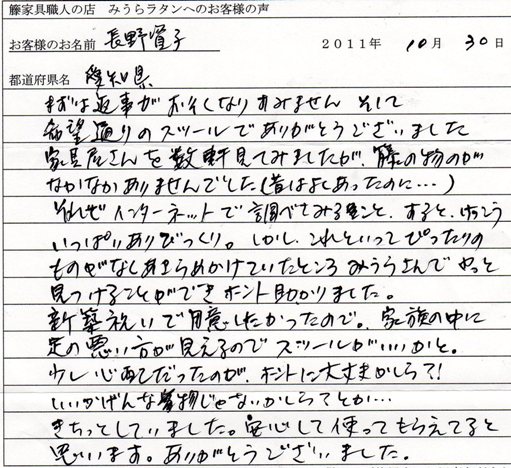 籐家具職人の店　みうらラタンへのお客様の声
お客様のお名前 長野寛子 2011年 10月 30日
都道府県名 愛知県
まずは返事がおそくなりすみません そして
希望通りのスツールでありがとうございました
家具屋さんを数軒見てみましたが、籐の物のが
なかなかありませんでした(昔はよくあったのに…)
それでインターネットで調べてみること、すると、けっこう
いっぱいありびっくり。しかし、これといってぴったりの
ものがなしあきらめかけていたところ みうらさんで やっと
見つけることができ ホント助かりました。
新築祝いで用意したかったので。家族の中に
足の悪い方が見えるので スツールがいいかと。
少し心配だったのが、ホントに大丈夫かしら?!
いいかげんな物じゃないかしら?とか…
きちっとしていました。安心して使ってもらえてると
思います。ありがとうございました。